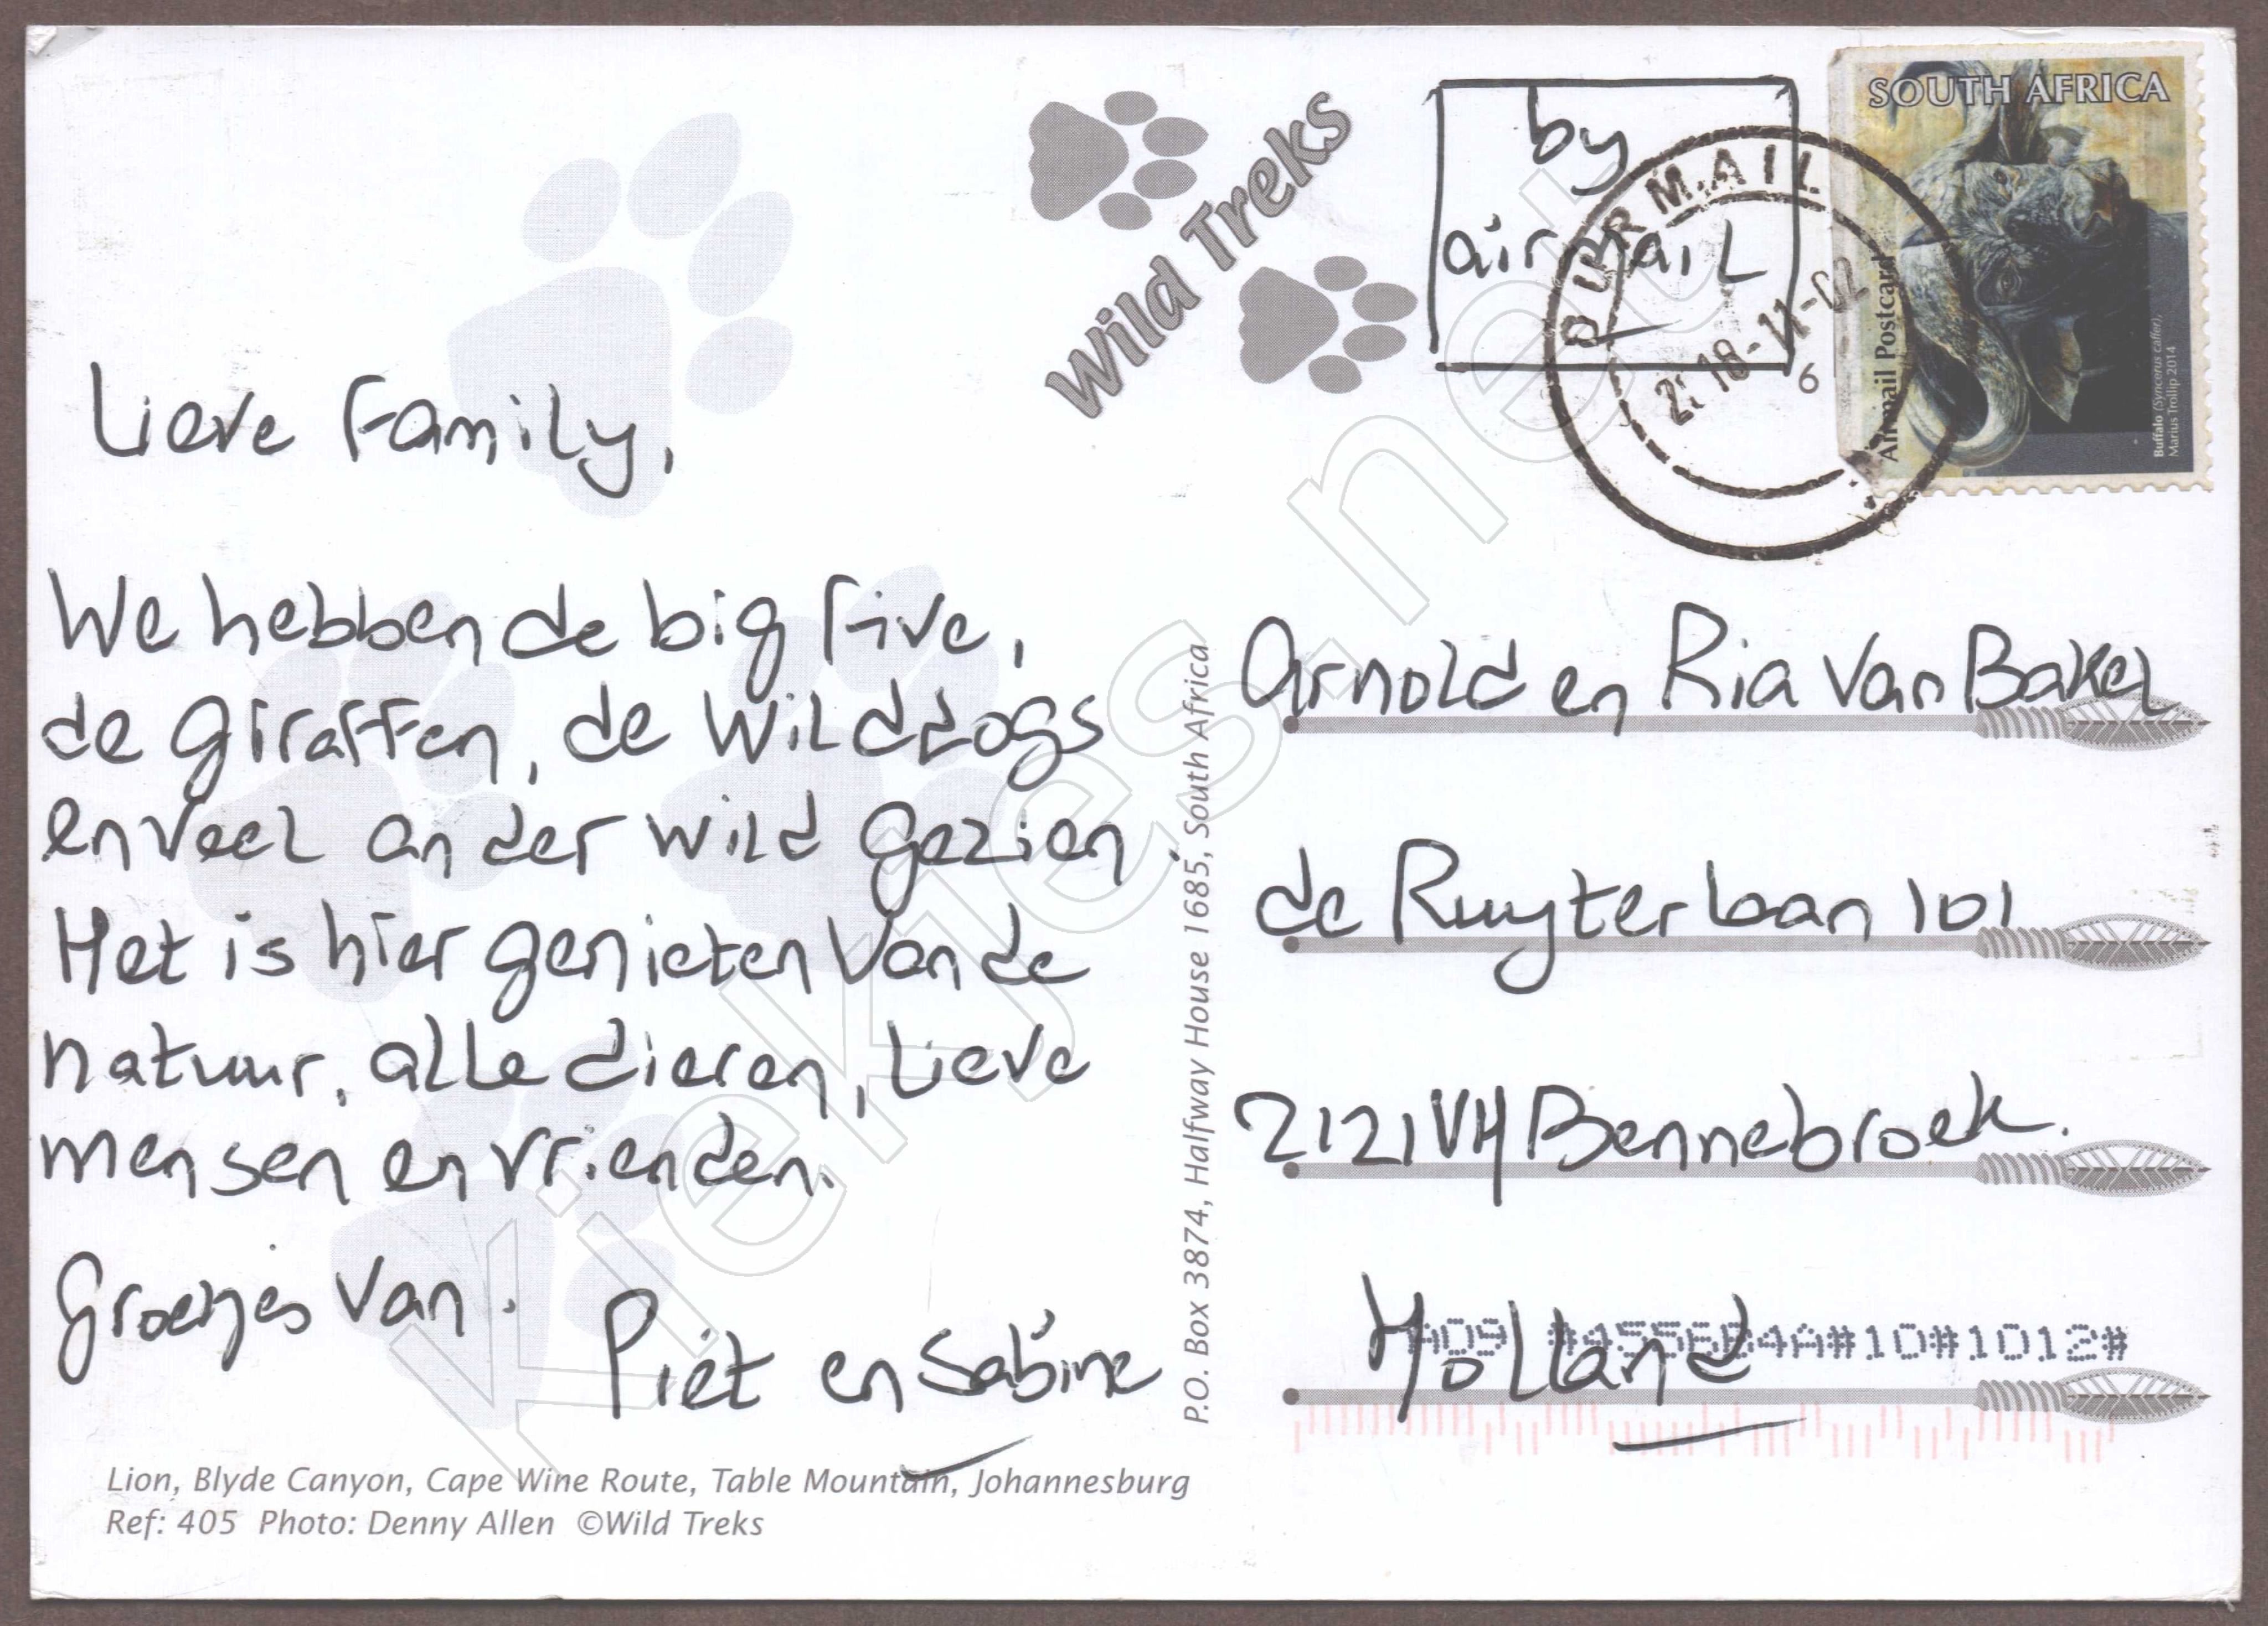 Lieve Family,
We hebben de big five,
de giraffen, de wilddogs
en veel ander wild gezien.
Het is hier genieten van de
natuur, alle dieren, lieve
mensen en vrienden.
Groetjes van.
Piet en Sabine
Lion, Blyde Canyon, Cape Wine Route, Table Mountain, Johannesburg
Ref: 405 Photo: Denny Allen ©Wild Treks
Wild Treks
P.O. Box 3874, Halfway House 1685, South Africa
by
airmail
DURMAIL
18-11-02
6
SOUTH AFRICA
Airmail Postcard
Buffalo (Syncerus caffer).
Marius Trollip 2014
Arnold en Ria van Bakel
de Ruyterlaan 101
2121VH Bennebroek.
Holland
4A#10#1012#
kiekjes.net